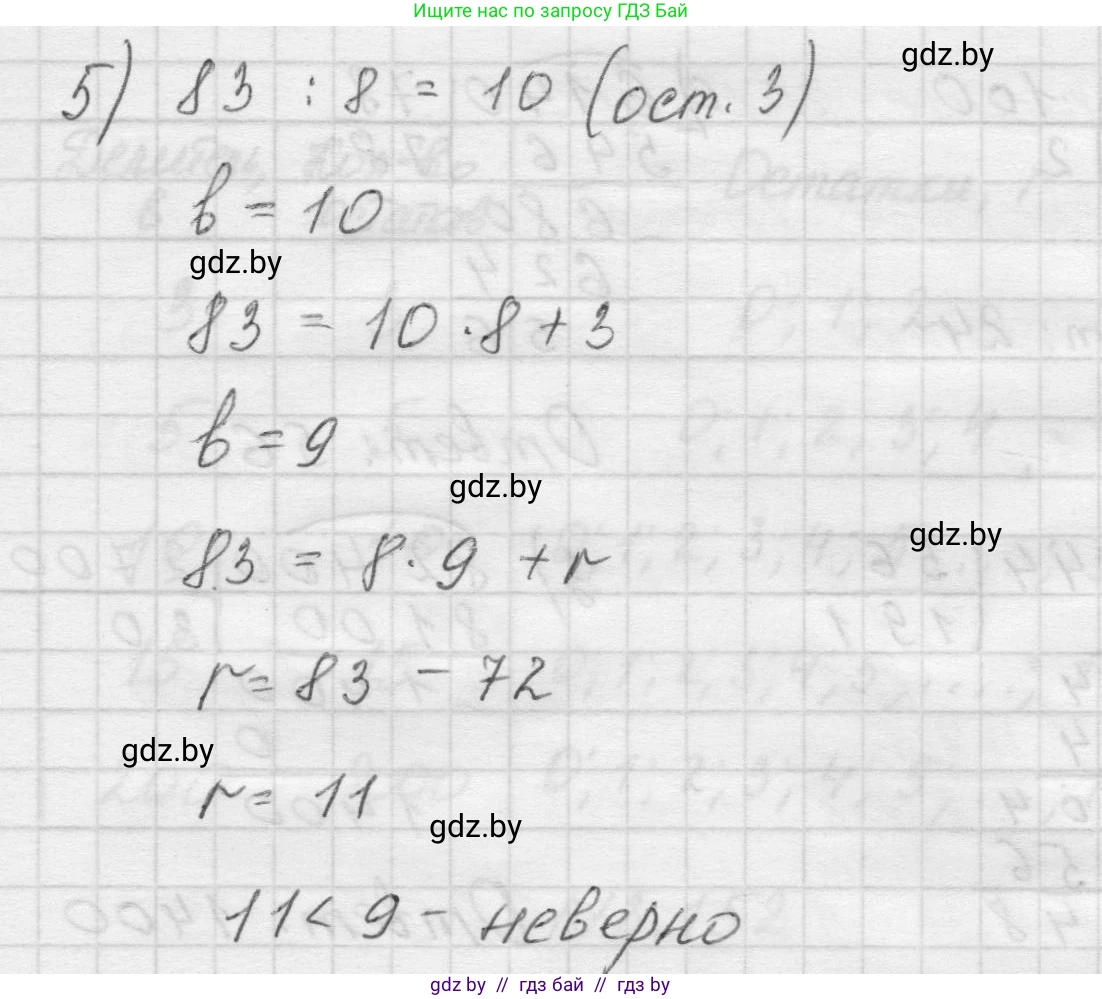 Ищите нас по запросу ГДЗ Бай
gdz.by
5) 83 : 8 = 10 (ост. 3)
в = 10
gdz.by
83 = 10 · 8 + 3
в = 9
gdz.by
gdz.by
83 = 8 · 9 + r
r = 83 - 72
gdz.by
r = 11
gdz.by
11 < 9 - неверно
gdz by // гдз бай // гдз by